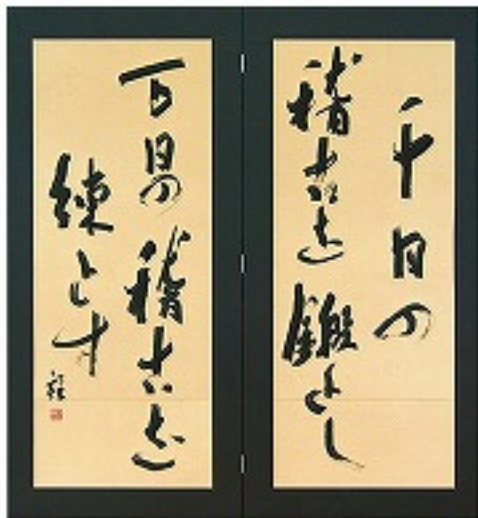 千日の
稽古を鍛とし
万日の稽古を
練とす